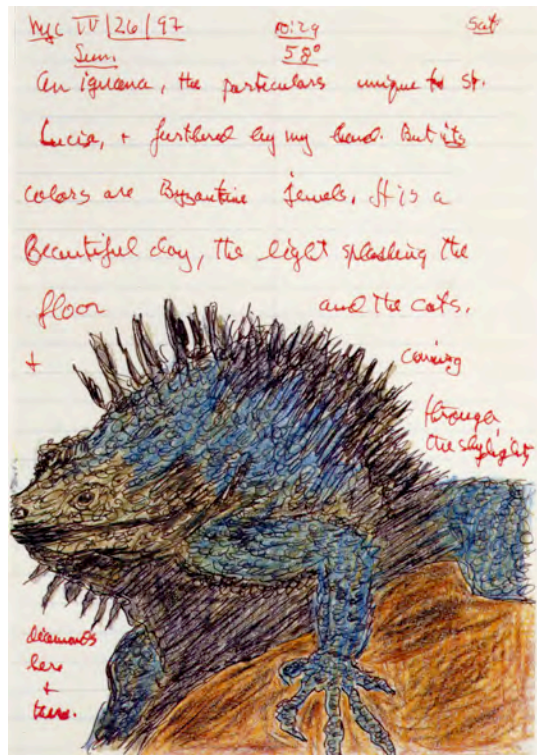 NYC IV/26/97 10:29 Sat
Sun. 58°
An iguana, the particulars unique to St.
Lucia, + furthered by my hand. But its
colors are Byzantine jewels. It is a
Beautiful day, the light splashing the
floor and the cats,
+ coming
through
the skylights
diamonds
here
+
there.